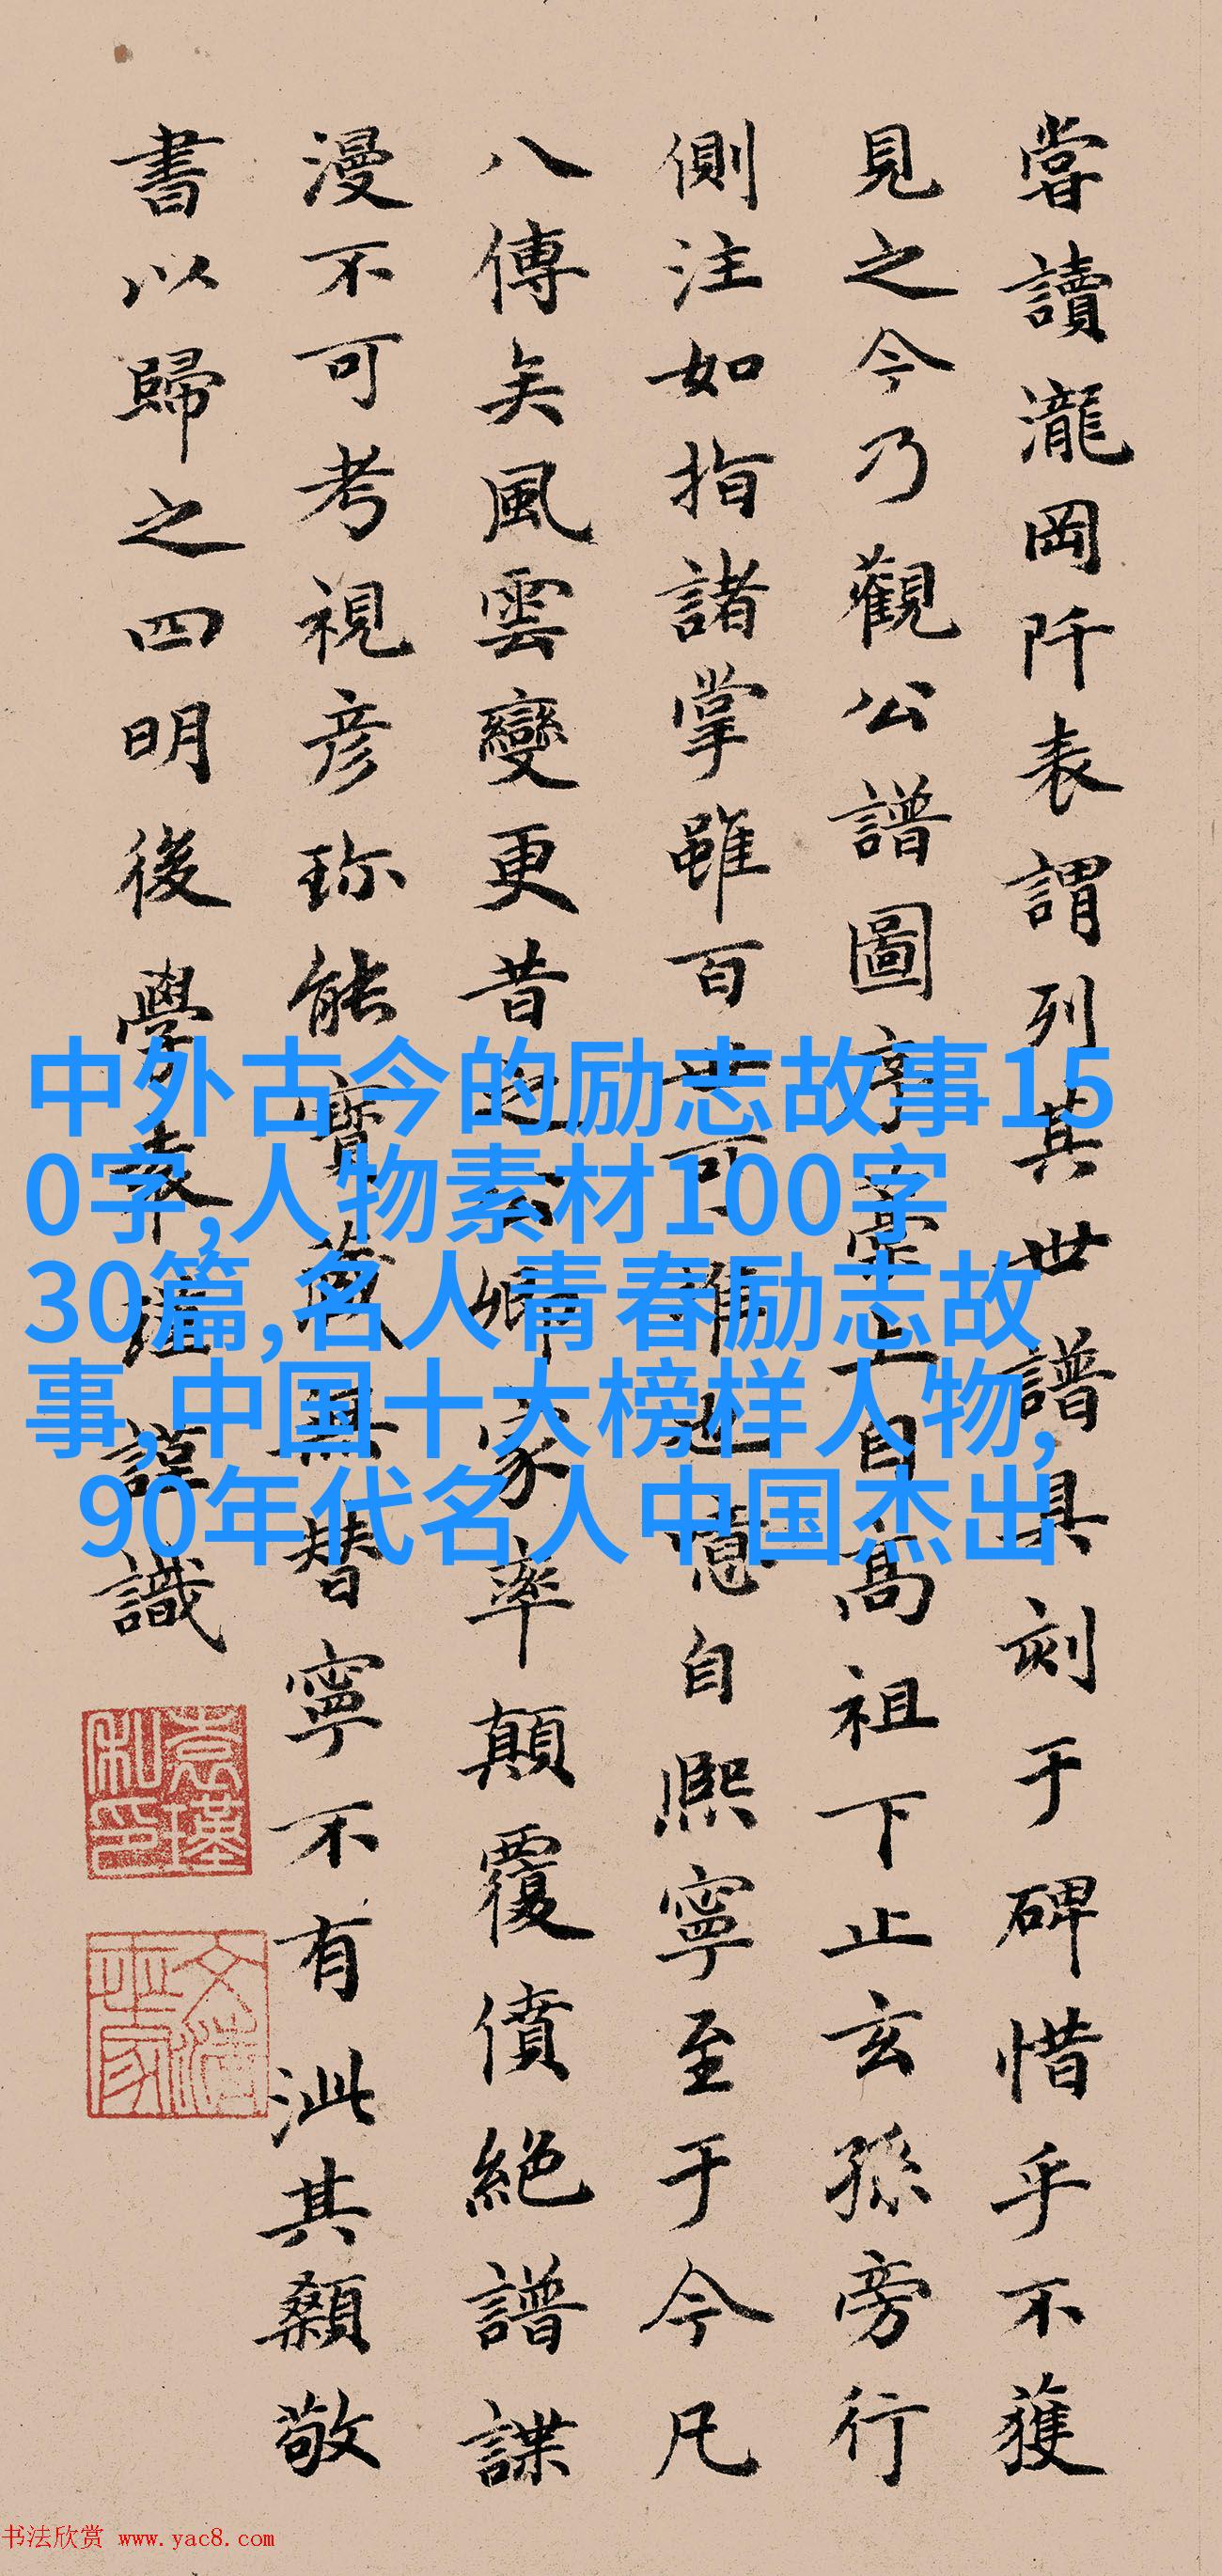 嘗讀瀧岡阡表謂列其世譜具刻于碑惜乎不獲
見之今乃觀公譜圖亭堂上自高祖下止玄孫旁行
側注如指諸掌雖百世可推也憶自熙寧至于今凡
八傳矣風雲變更昔之公卿家率顛覆僨絕譜諜
漫不可考視彥珎能寶藏無替寧不有泚其顙敬
書以歸之四明後學袁瑾謹識
中外古今的励志故事15
0字,人物素材100字
30篇,名人青春励志故
事,中国十大榜样人物,
90年代名人中国杰出
袁瑾
私印
文清
世家
书法欣赏 www.yac8.com